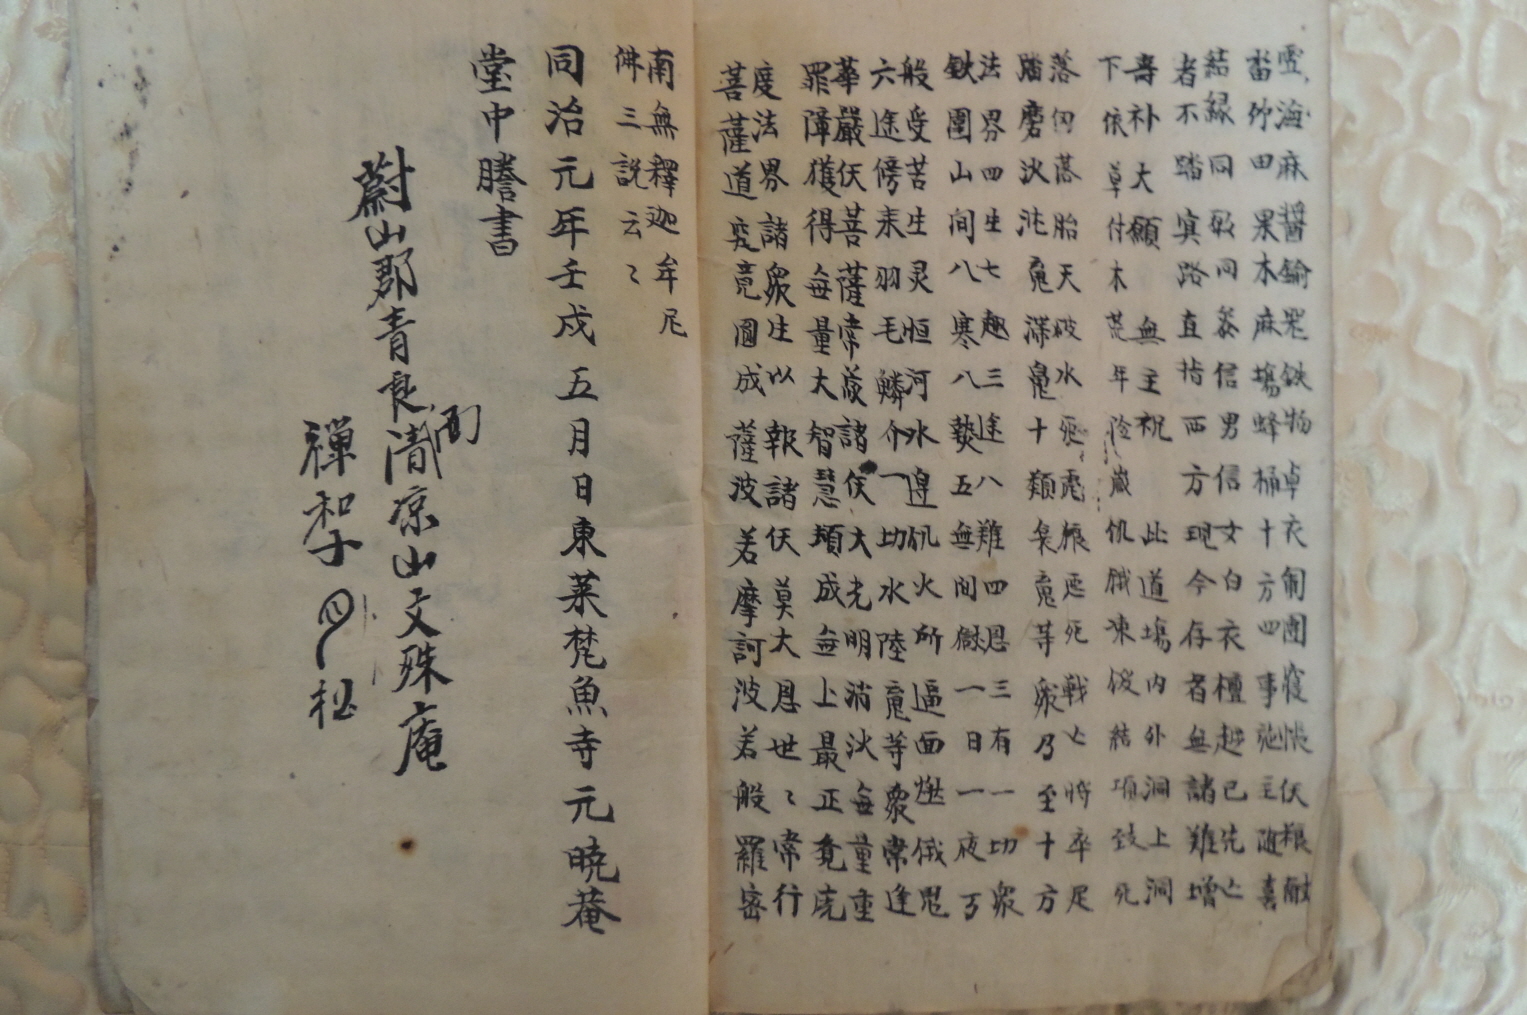 海麻醬鍮器鉄物卓衣團寢帳粮献
畓竹田果木麻塲蜂桶十方四事施主随喜
結緣同叅信男信女白衣檀越已先亡
者不踏冥路直指西方現今存者無諸難增
壽补大願 無主祝 此道塲内外洞上洞
下依草付木荒年險嵗飢餓凍餒結項致死
落傷落胎天破水死虎狼惡死戰亡將卒足
踏磨鬼滯鬼十類哀魂等衆乃至十方
法界四生七趣三途八難四恩三有一切衆
鉄圍山間八寒八熱五無間獄一日一夜万
般受苦生灵恒河水邊飢火所逼面燃餓鬼
六途傍来羽毛鱗介一切水陸魂等衆常逢
華嚴仸菩薩常蒙諸仸大光明消滅無量重
罪障獲得無量大智慧頓成無上最正覺廣
度法界諸衆生以報諸仸莫大恩世〻常行
菩薩道究竟圓成薩波若摩訶波若般羅密
南無釋迦牟尼
佛三說云〻
同治元年壬戌五月日東萊梵魚寺元曉菴
堂中謄書
蔚山郡青良面清凉山文殊庵
禪和子 松